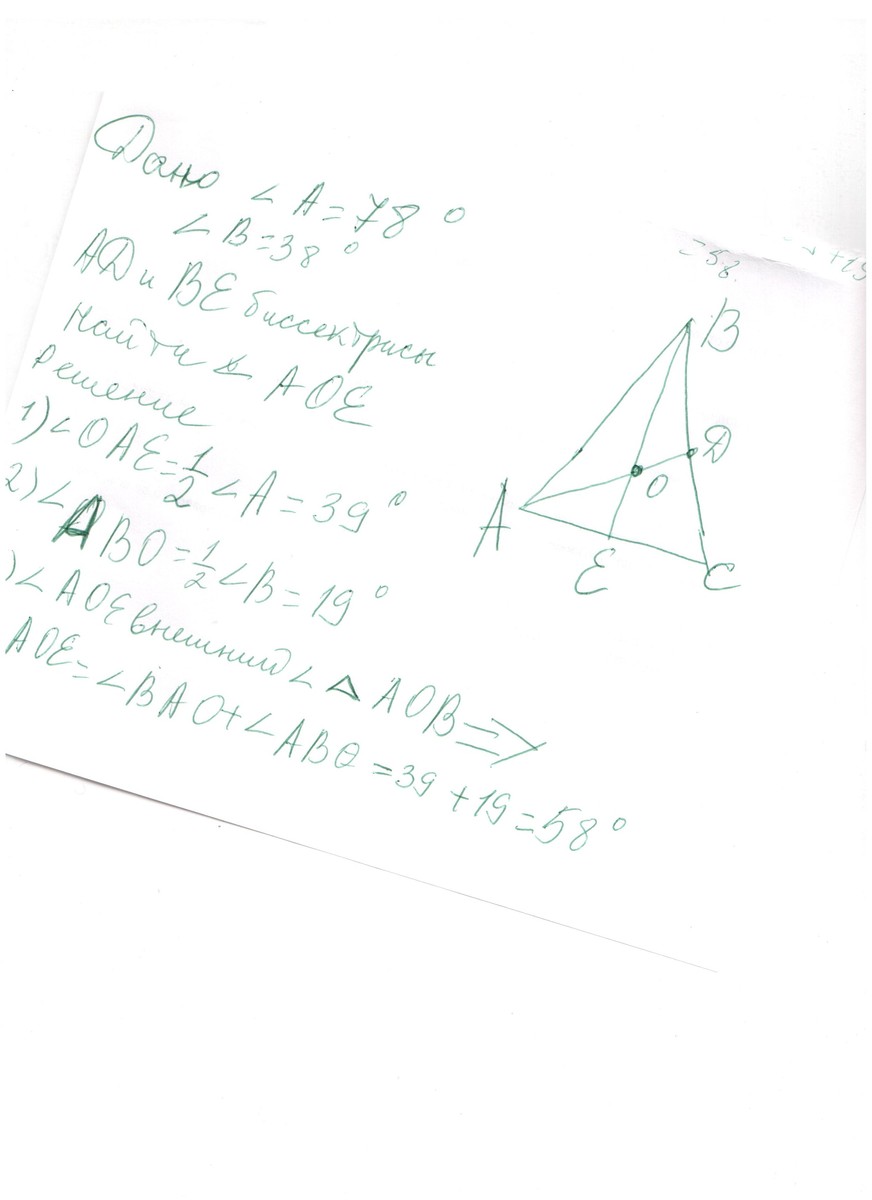 Дано ∠A=78°
∠B=38°
AD и BE биссектрисы
Найти ∠ AOE
Решение
1)∠OAE=1/2∠A=39°
2)∠ABO=1/2∠B=19°
)∠AOE внешний ∠ △ AOB=>
AOE=∠BAO+∠ABO=39+19=58°
=58
+19
B
D
O
A
E
C